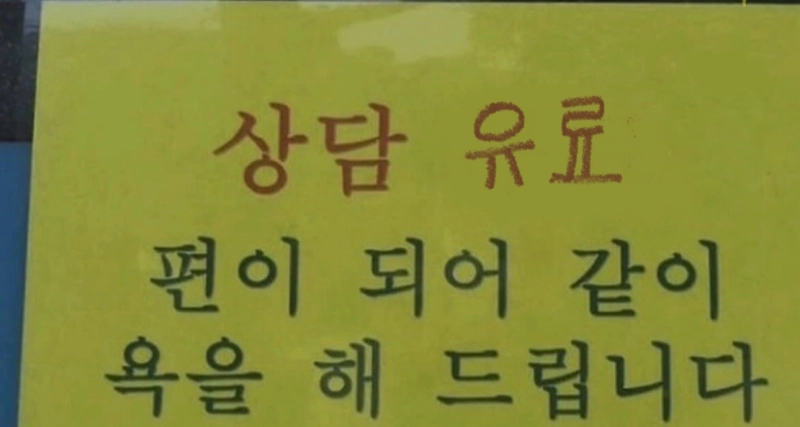 상담 유료
편이 되어 같이
욕을 해 드립니다